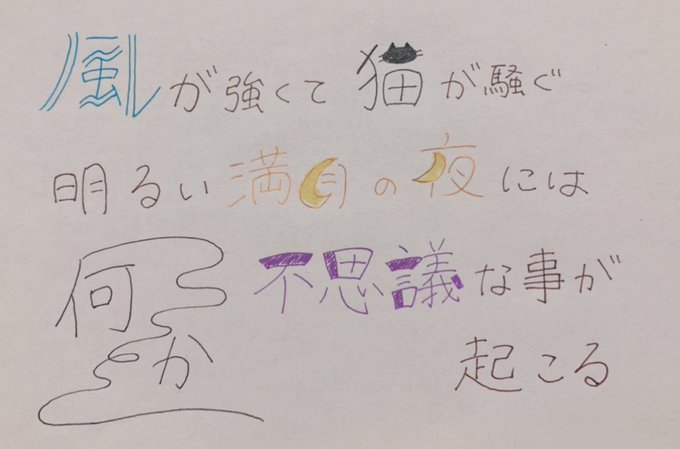 風が強くて猫が騒ぐ
明るい満月の夜には
何か不思議な事が
起こる